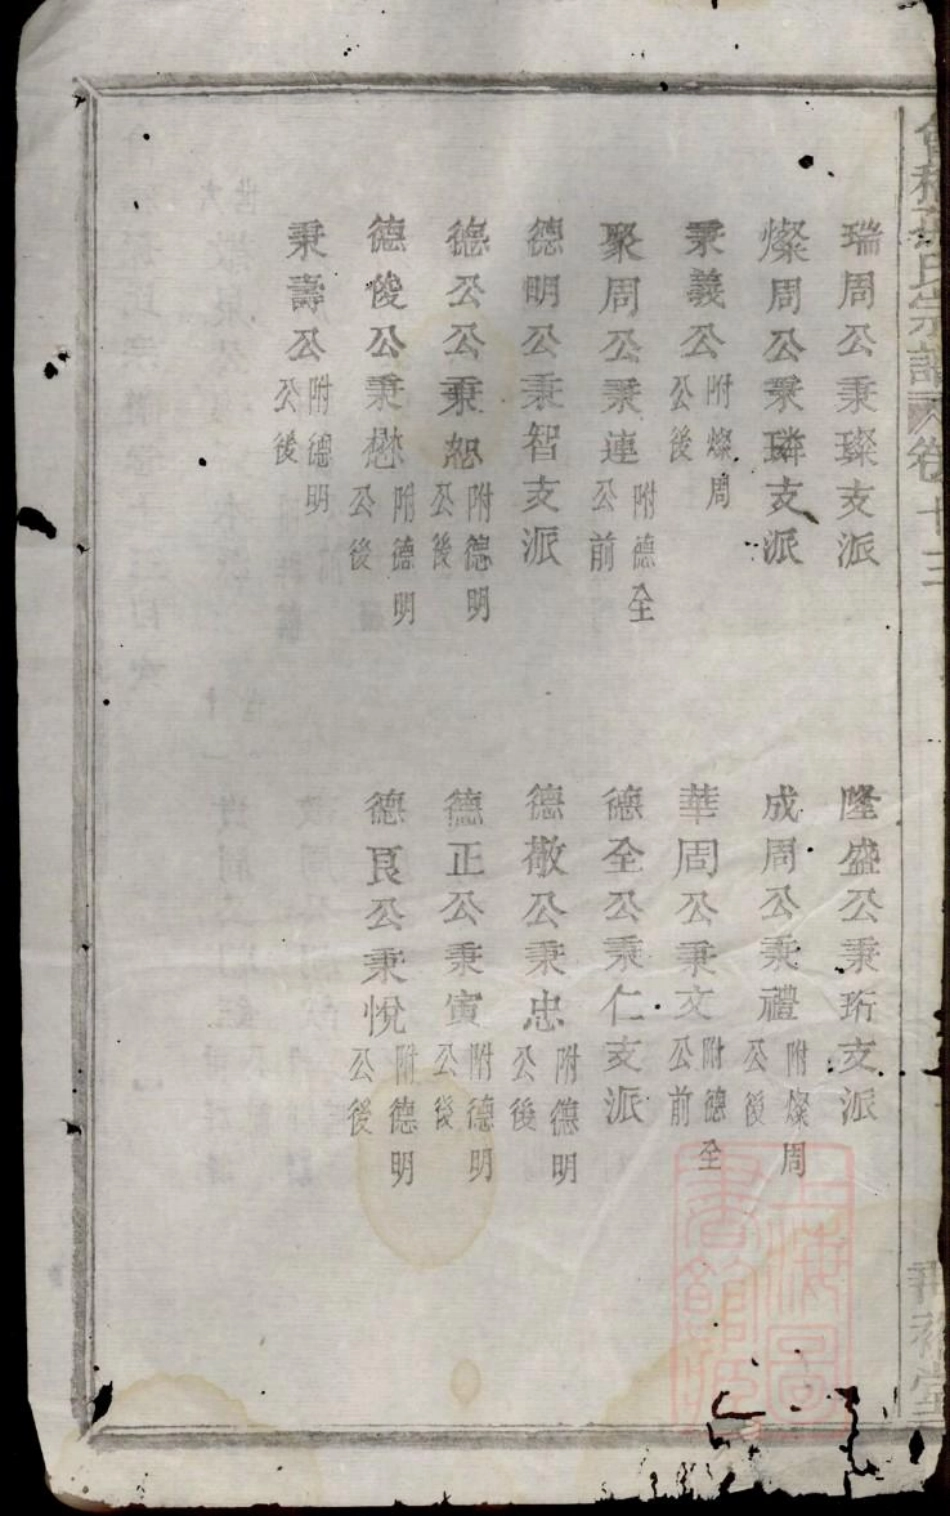 宗譜 卷十三
瑞周公秉璨支派
隆盛公秉珩支派
燦周公秉璘支派
成周公秉禮附燦周公後
秉義公附燦周公後
華周公秉文附德全公前
聚周公秉連附德全公前
德全公秉仁支派
德明公秉智支派
德敬公秉忠附德明公後
德公公秉恕附德明公後
德正公秉寅附德明公後
德俊公秉懋附德明公後
德良公秉悅附德明公後
秉壽公附德明公後
上海圖書館藏